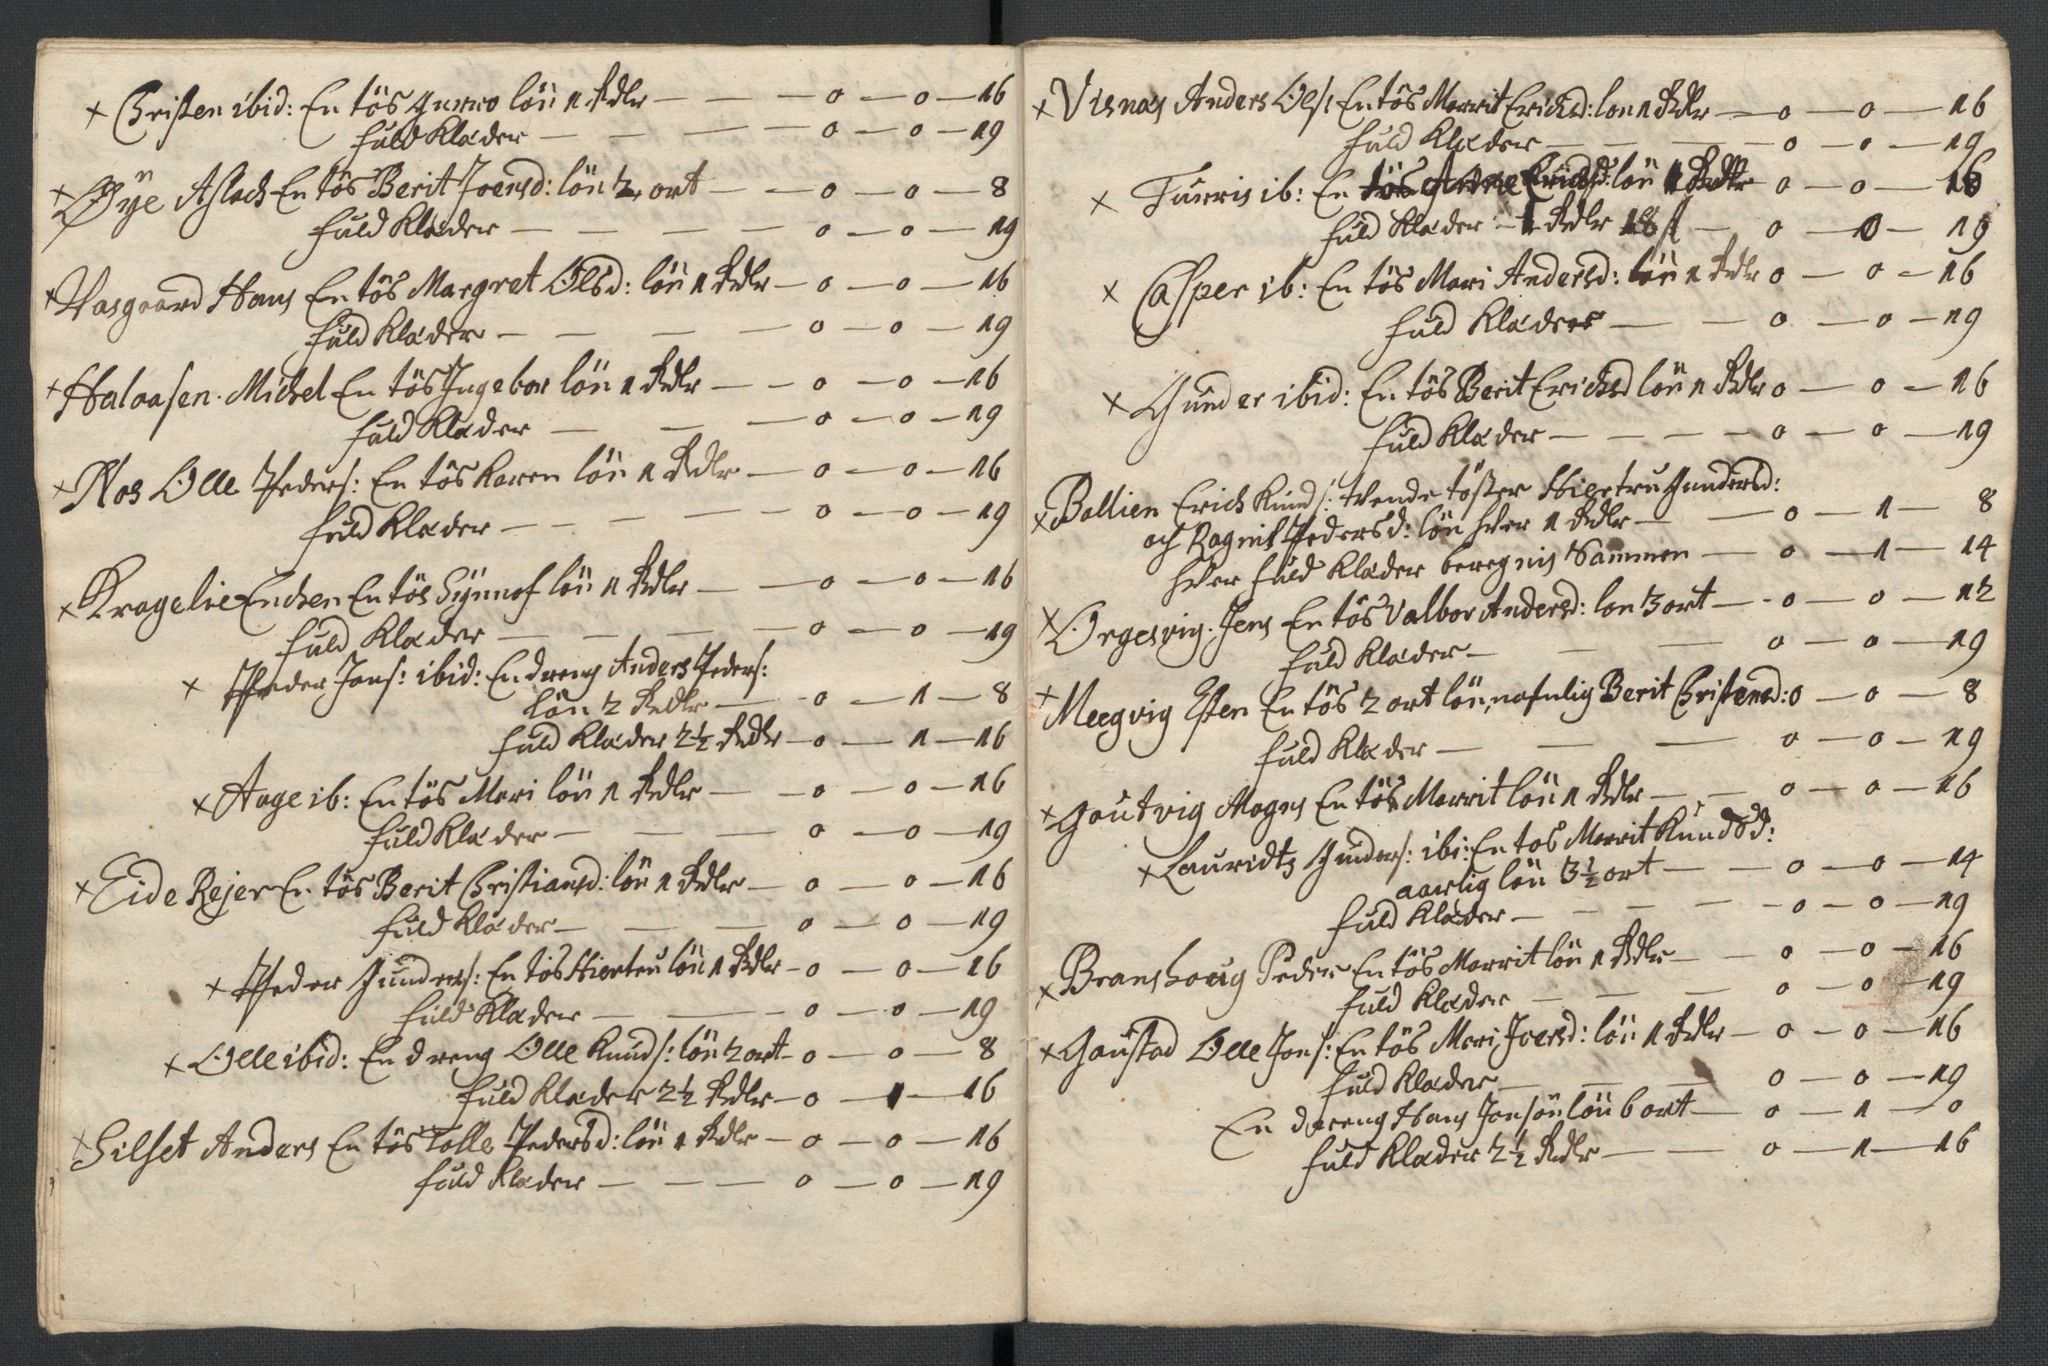 × Christen ibid: En tös Gurro lön 1 Rdlr — — — 0 — 0 — 16
fuld Klæder — — — — 0 — 0 — 19
× Øye Aslach En tös Berit Joensd: lön 2 ort — — 0 — 0 — 8
fuld Klæder — — — — 0 — 0 — 19
× Vasgaard Hans En tös Margret Olsd: lön 1 Rdlr — 0 — 0 — 16
fuld Klæder — — — — 0 — 0 — 19
× Halaasen Michel En tös Ingebor lön 1 Rdlr — — 0 — 0 — 16
fuld Klæder — — — 0 — 0 — 19
× Nos Olle Peders: En tös Karen lön 1 Rdlr — 0 — 0 — 16
fuld Klæder — — — — 0 — 0 — 19
× Kragelie Enchen En tös Synnof lön 1 Rdlr — — 0 — 0 — 16
fuld Klæder — — — — 0 — 0 — 19
× Peder Jons: ibid: En dreng Anders Peders:
lön 2 Rdlr — — 0 — 1 — 8
fuld Klæder 2½ Rdlr — 0 — 1 — 16
× Aage ib: En tös Mari lön 1 Rdlr — — 0 — 0 — 16
fuld Klæder — — — 0 — 0 — 19
× Eide Rejer En tös Berit Christiansd: lön 1 Rdlr — 0 — 0 — 16
fuld Klæder — — — 0 — 0 — 19
× Peder Gunders: En tös Hiertru lön 1 Rdlr — 0 — 0 — 16
fuld Klæder — — — 0 — 0 — 19
× Olle ibid: En dreng Olle Knuds: lön 2 ort — 0 — 0 — 8
fuld Klæder 2½ Rdlr — 0 — 1 — 16
× Silset Anders En tös Tolle Pedersd: lön 1 Rdlr — 0 — 0 — 16
fuld Klæder — — — 0 — 0 — 19
× Visnas Anders Ols: En tös Marrit Erichsd: lon 1 Rdlr — 0 — 0 — 16
fuld Klæder — — — — 0 — 0 — 19
× Turris ib: En tös Anne Erichsd: lön 1 Rdlr 0 — 0 — 16
fuld Klæder — 1 Rdlr 18 s — 0 — 0 — 19
× Casper ib: En tös Mari Andersd: lön 1 Rdlr 0 — 0 — 16
fuld Klæder — — 0 — 0 — 19
× Gunder ibid: En tös Berit Erichsd lön 1 Rdlr 0 — 0 — 16
fuld Klæder — — — — 0 — 0 — 19
× Bollien Erich Knuds: tvende töser Hiertru Gundersd:
och Ragnil Pedersd: lön hver 1 Rdlr — — 0 — 1 — 8
hver fuld Klæder beregnis Sammen — 0 — 1 — 14
× Orgesvig Jens En tös Valbor Andersd: lon 3 ort — 0 — 0 — 12
fuld Klæder — — — 0 — 0 — 19
× Meegvig Esten En tös 2 ort lön, nafnlig Berit Christensd: 0 — 0 — 8
fuld Klæder — — — 0 — 0 — 19
× Goutvig Mogns En tös Marrit lön 1 Rdlr — — 0 — 0 — 16
× Lauridtz Gunders: ibi: En tos Marrit Knudsd:
aarlig lön 3½ ort — — 0 — 0 — 14
fuld Klæder — — — — 0 — 0 — 19
× Branshoug Peder En tös Marrit lön 1 Rdlr — — 0 — 0 — 16
fuld Klæder — — — 0 — 0 — 19
× Goustad Olle Jons: En tös Mari Joersd: lön 1 Rdlr — 0 — 0 — 16
fuld Klæder — — — 0 — 0 — 19
En dreng Hans Jonsön lön 6 ort — 0 — 1 — 0
fuld Klæder 2½ Rdlr — — 0 — 1 — 16